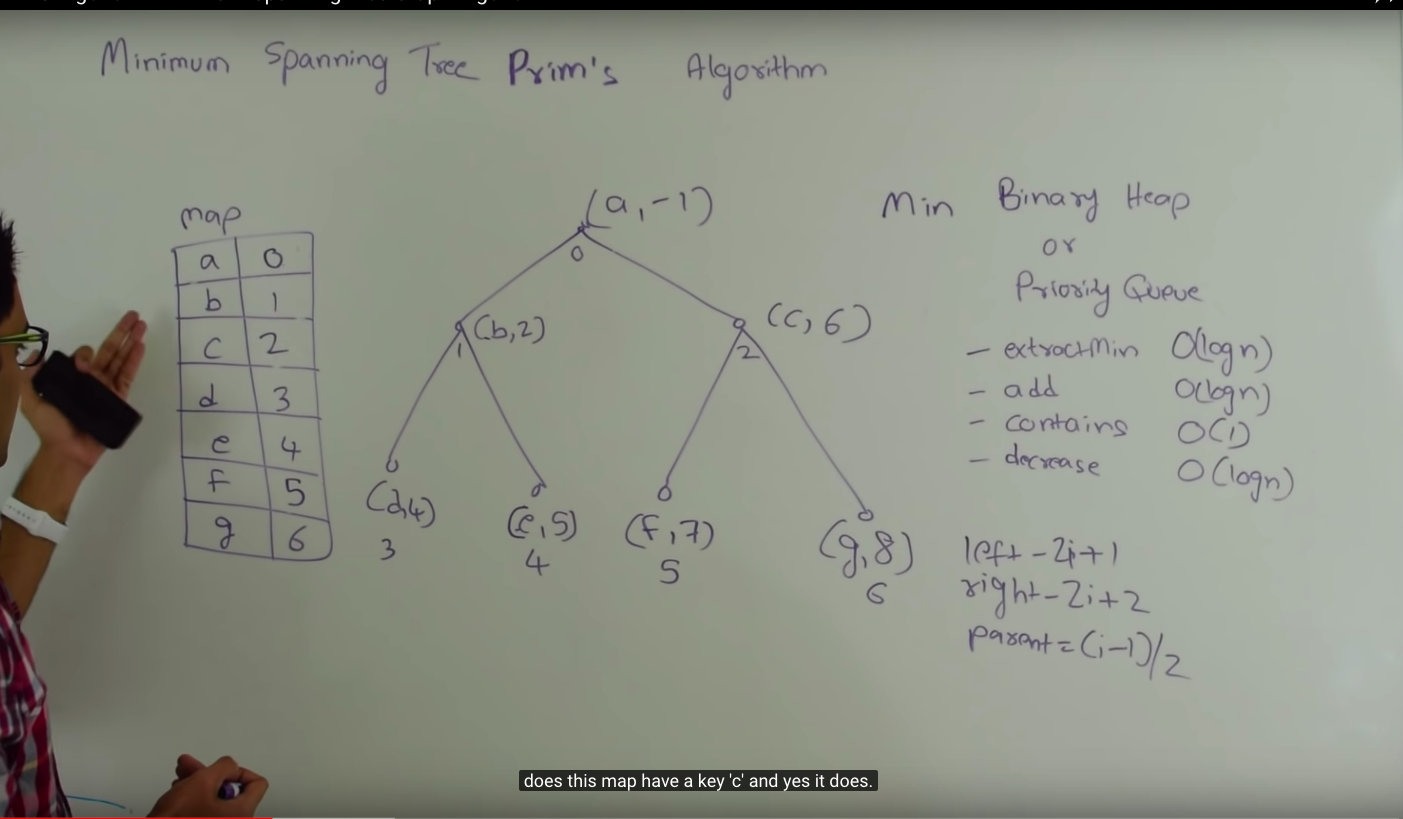 Minimum Spanning Tree Prim's Algorithm
map
a 0
b 1
c 2
d 3
e 4
f 5
g 6
(a,-1)
0
(b,2)
1
(c,6)
2
(d,4)
3
(e,5)
4
(f,7)
5
(g,8)
6
Min Binary Heap
or
Priority Queue
- extractMin O(logn)
- add O(logn)
- contains O(1)
- decrease O(logn)
left - 2i+1
right - 2i+2
parent = (i-1)/2
does this map have a key 'c' and yes it does.